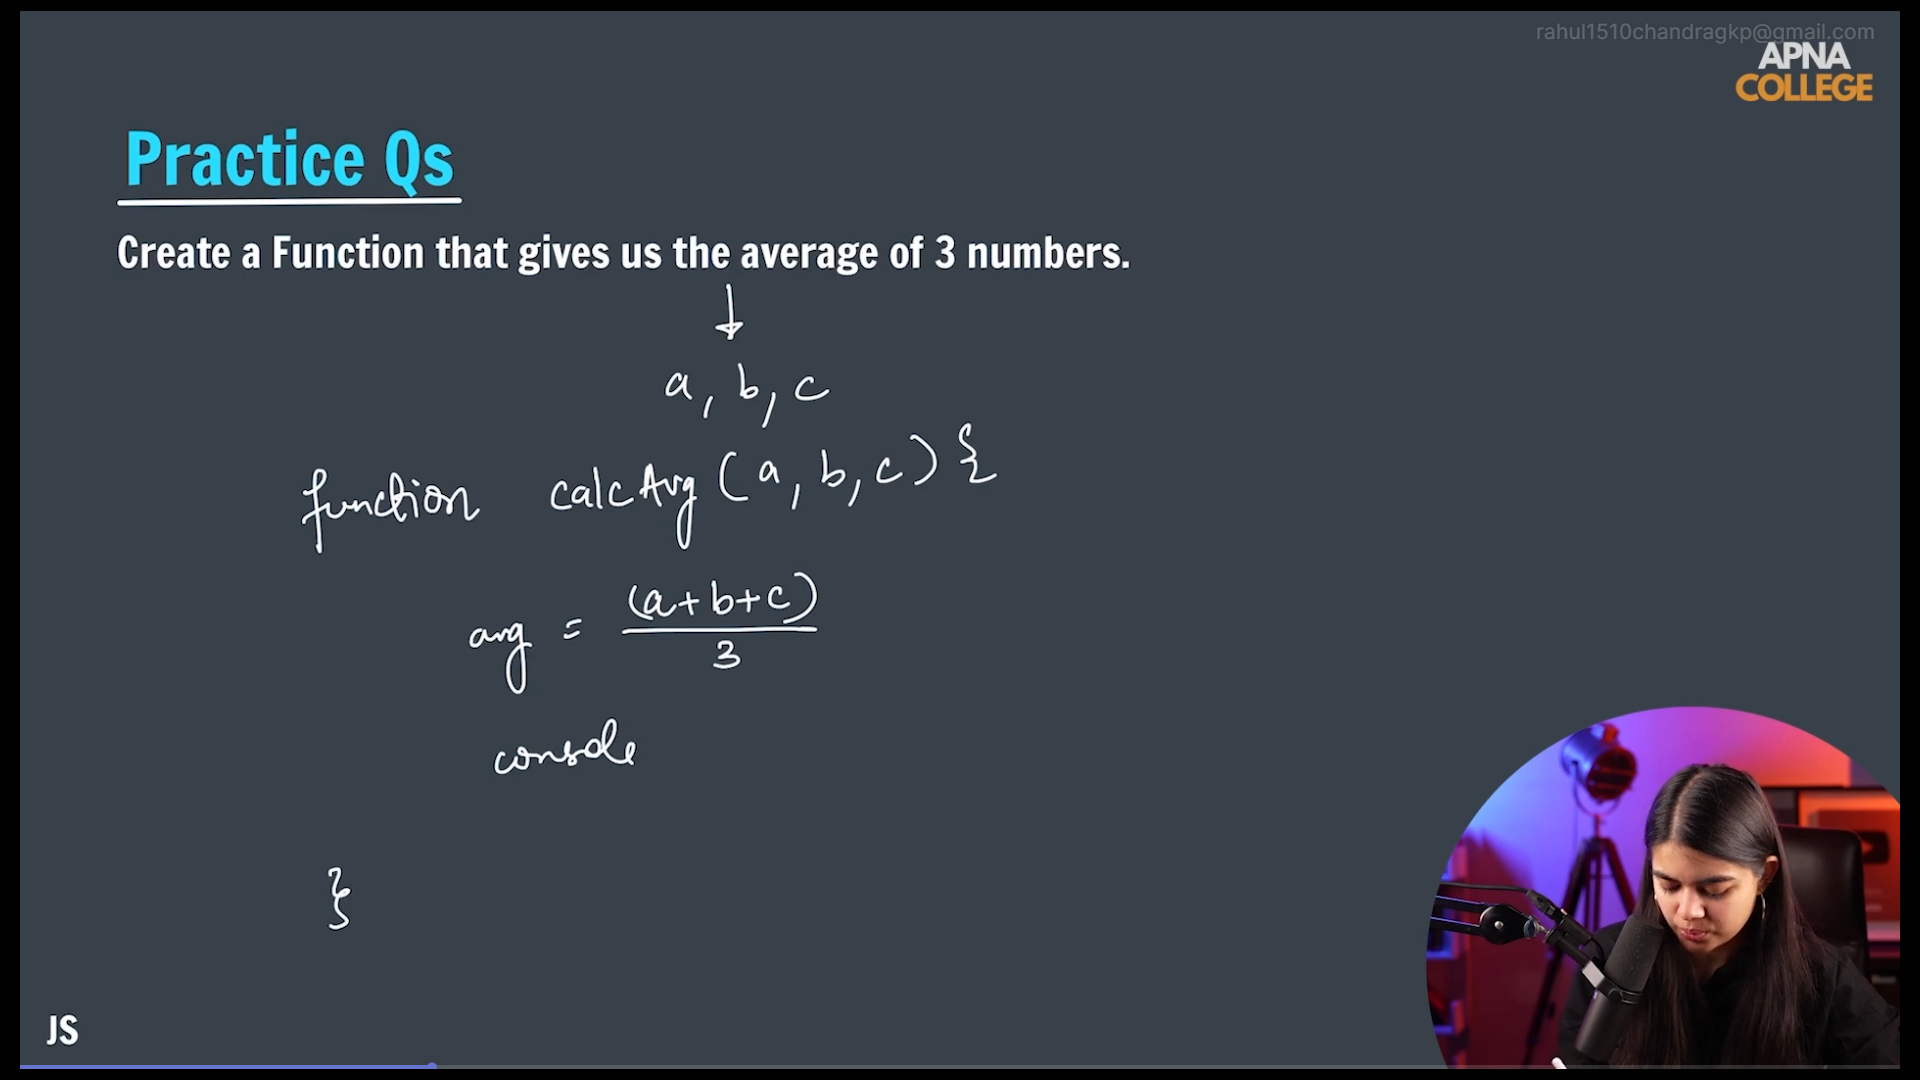 rahul1510chandragkp@gmail.com
APNA
COLLEGE
Practice Qs
Create a Function that gives us the average of 3 numbers.
a, b, c
function calcAvg (a, b, c) {
avg = (a+b+c)
3
console
}
JS